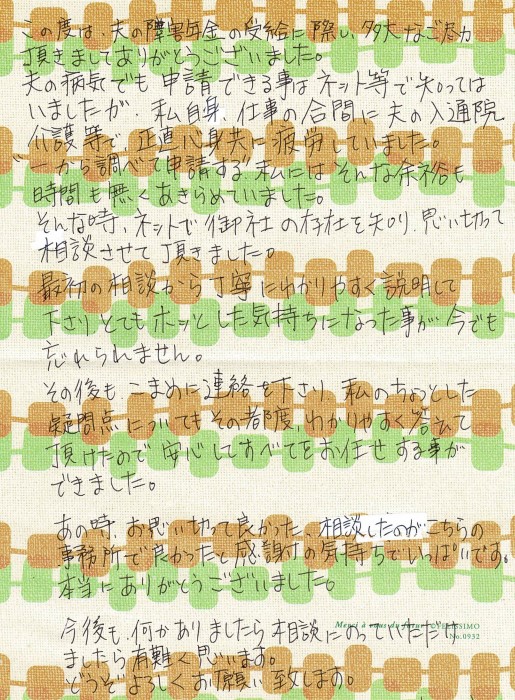 この度は、夫の障害年金の受給に際し、多大なご尽力
頂きましてありがとうございました。
夫の病気でも申請できる事はネット等で知っては
いましたが、私自身、仕事の合間に夫の入通院
介護等で、正直心身共に疲労していました。
"一から調べて申請する"私にはそんな余裕も
時間も無くあきらめていました。
そんな時、ネットで御社の存在を知り、思い切って
相談させて頂きました。
最初の相談から丁寧にわかりやすく説明して
下さりとてもホッとした気持ちになった事が今でも
忘れられません。
その後も、こまめに連絡を下さり、私のちょっとした
疑問点についてもその都度、わかりやすく答えて
頂けたので安心してすべてをお任せする事が
できました。
あの時、お思い切って良かった、相談したのがこちらの
事務所で良かったと感謝の気持ちでいっぱいです。
本当にありがとうございました。
Merci à vous du futur ©FELISSIMO
No.0932
今後も、何かありましたら相談にのっていただけ
ましたら有難く思います。
どうぞよろしくお願い致します。